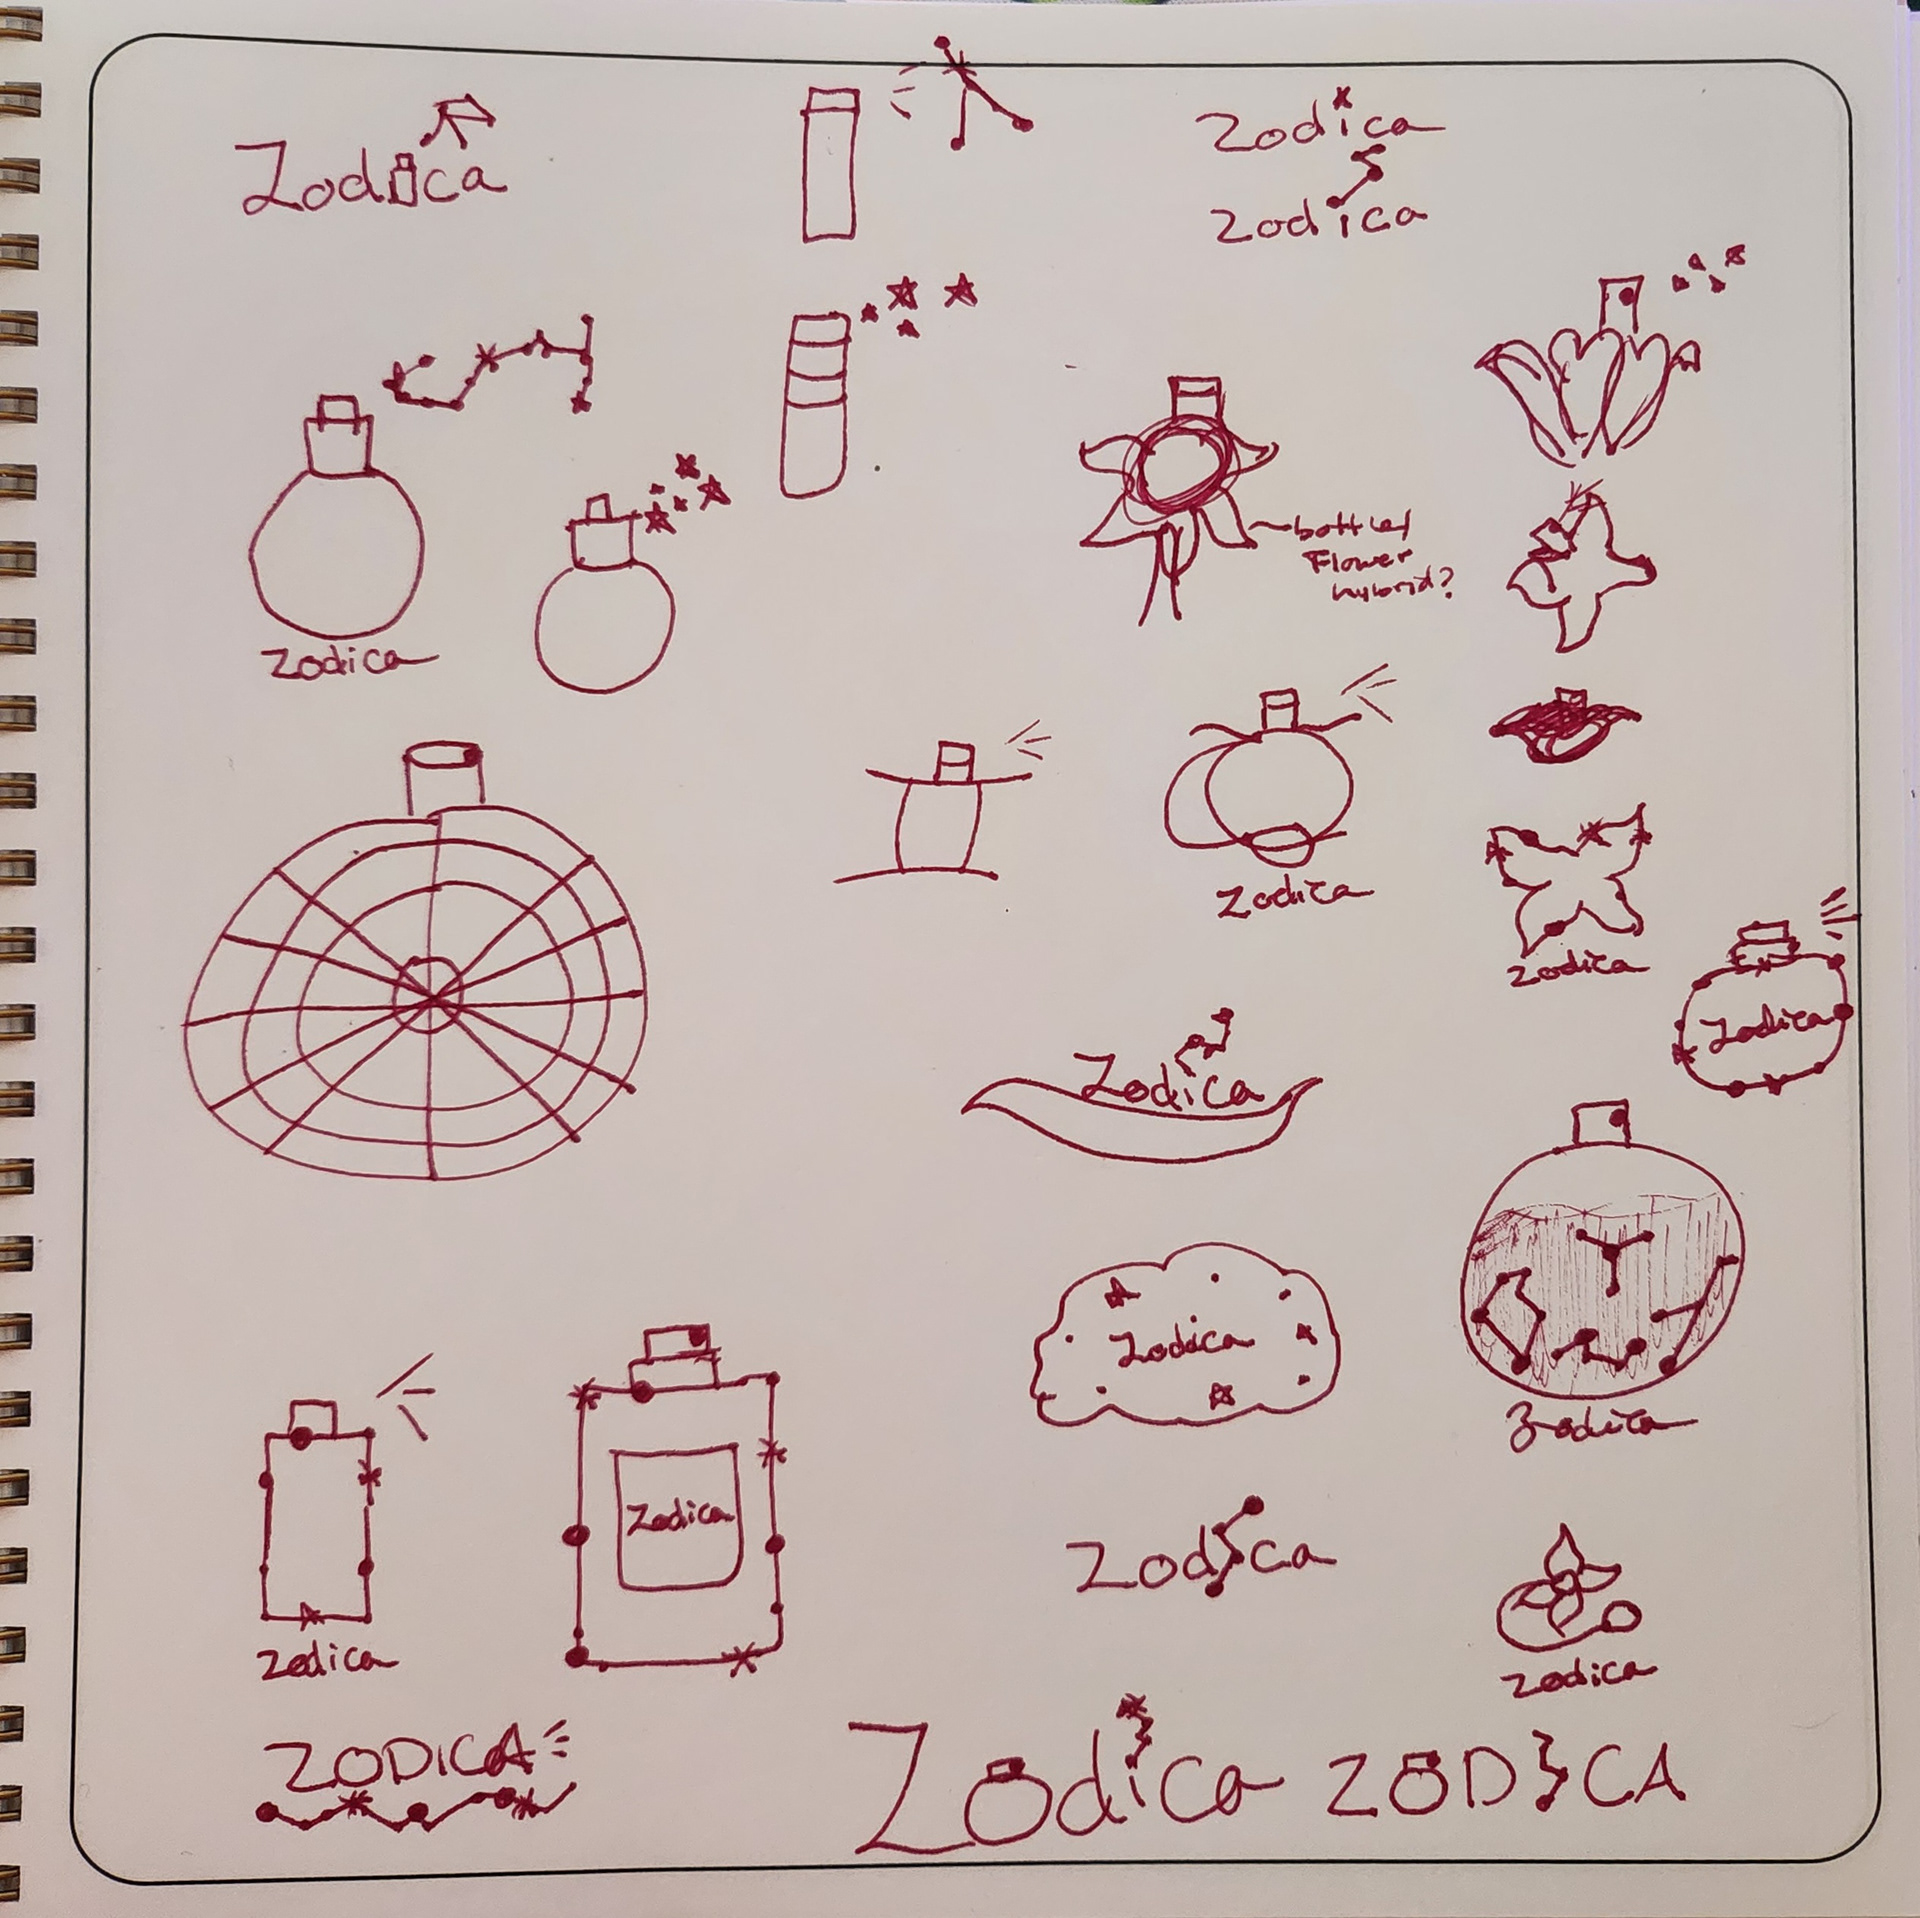 Zodica
Zodica
Zodica
bottle/
Flower
hybrid?
Zodica
Zodica
Zodica
Zodica
Zodica
Zodica
Zodica
Zodica
Zodica
Zodica
Zodica
ZODICA
Zodica
ZODICA